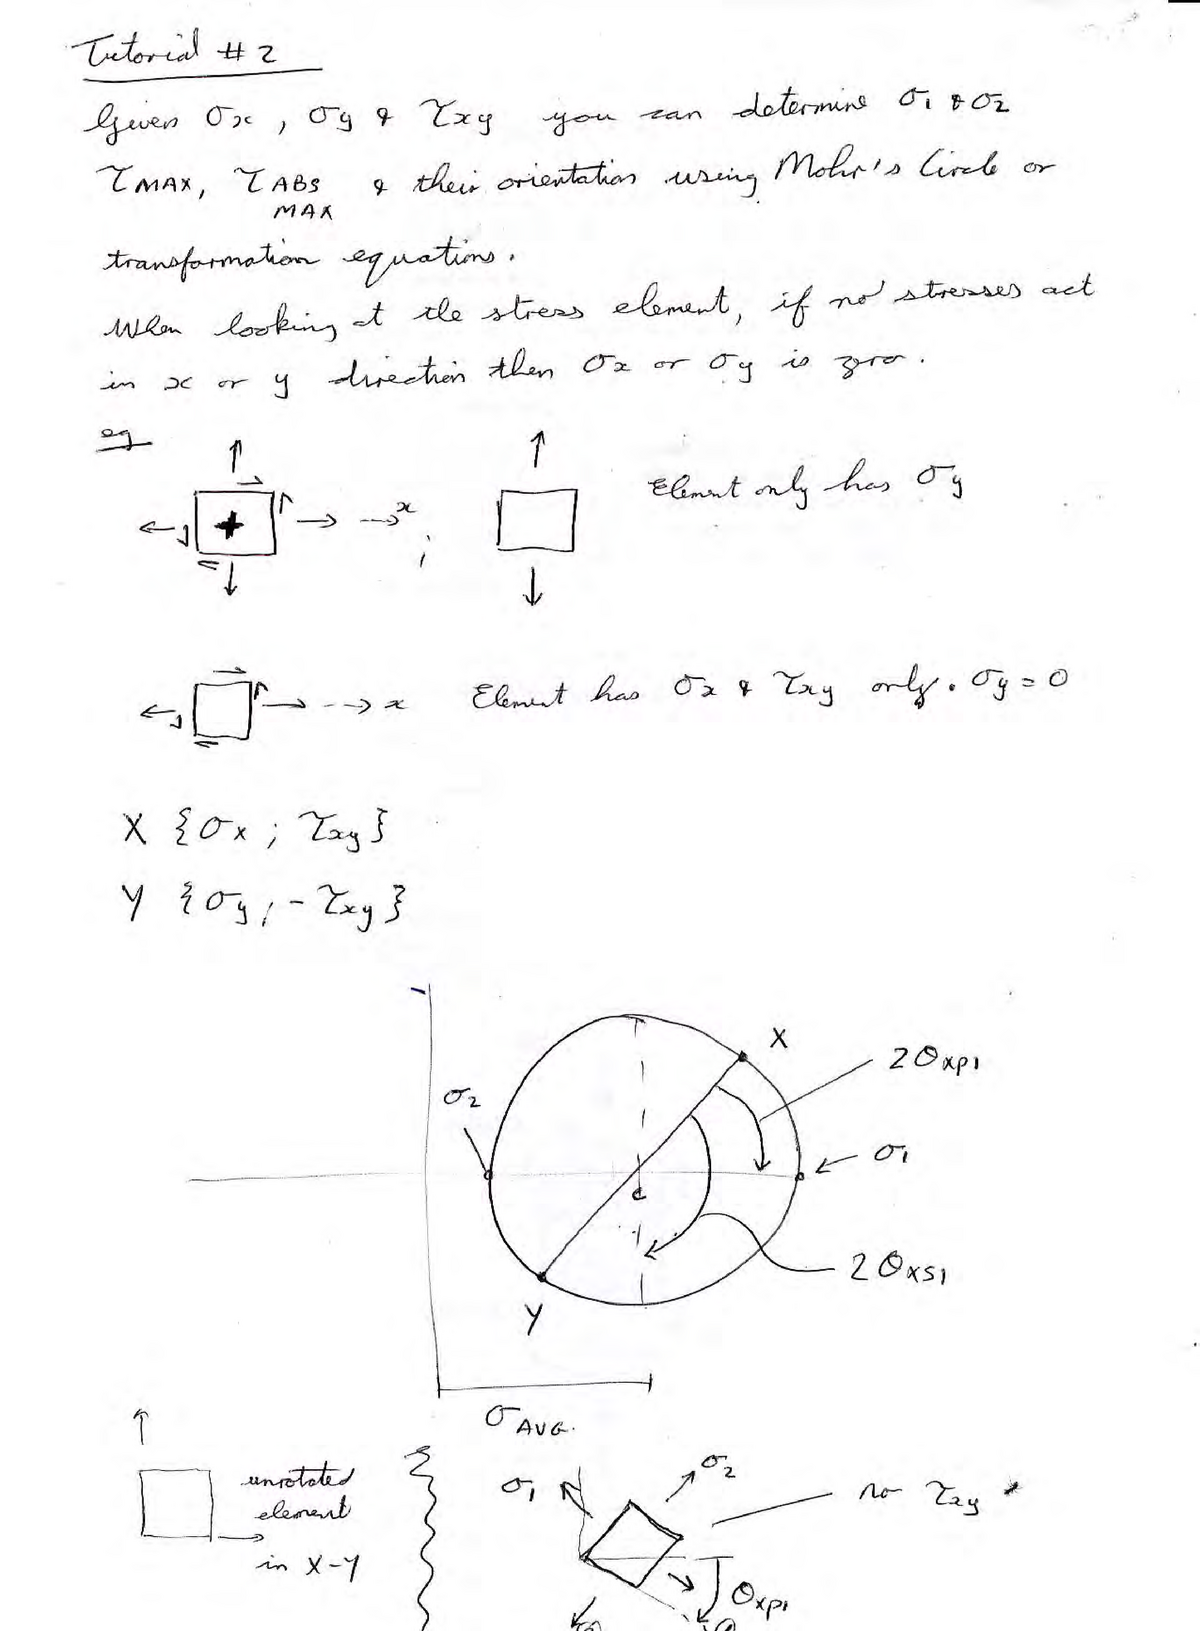 Tutorial # 2
Given σx , σy & τxy you can determine σ1 & σ2
τMAX, τABS & their orientation using Mohr's Circle or
MAX
transformation equations.
When looking at the stress element, if no stresses act
in x or y direction then σx or σy is zero.
eg
x
;
Element only has σy
x
Element has σx & τxy only. σy = 0
X {σx ; τxy}
Y {σy ; - τxy}
X
2θxp1
σ2
σ1
c
2θxs1
Y
σAVG.
unrotated
element
in X-Y
σ1
σ2
no τxy *
θxp1